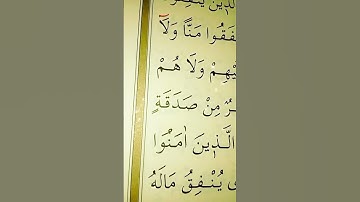 لَّذ۪ينَ يُنْفِقُو
فَقُوا مَنًّا وَلَٓا
يْهِمْ وَلَا هُمْ
رٌ مِنْ صَدَقَةٍ
الَّذ۪ينَ اٰمَنُوا
ى يُنْفِقُ مَالَهُ